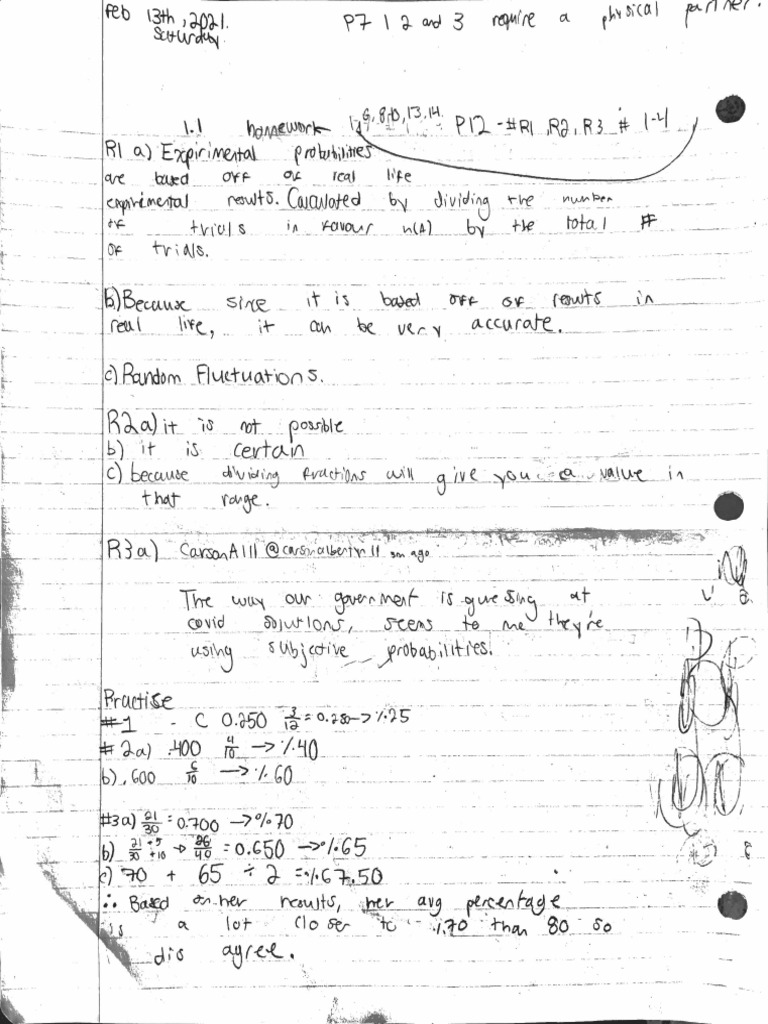 Feb 13th, 2021.
Saturday
P7 1 2 and 3 require a physical partner.
1.1 homework 13,14. P12 - #R1, R2, R3 # 1-4
R1 a) Expirimental probabilities
are based off of real life
expirimental results. Calculated by dividing the number
of trials in favour n(A) by the total #
of trials.
b) Because since it is based off of results in
real life, it can be very accurate.
c) Random Fluctuations.
R2a) it is not possible
b) it is certain
c) because dividing fractions will give you a value in
that range.
R3a) CarsonA111 5m ago
The way our government is guessing at
covid solutions, seems to me they're
using subjective probabilities.
Practise
#1 - C 0.250 3/12 = 0.250 → %25
# 2a) .400 4/10 → %40
b) .600 6/10 → %60
#3a) 21/30 = 0.700 → %70
b) 21/30 +5/+10 → 26/40 = 0.650 → %65
c) 70 + 65 ÷ 2 = %67.50
∴ Based on her results, her avg percentage
is a lot closer to %70 than 80 so
disagree.